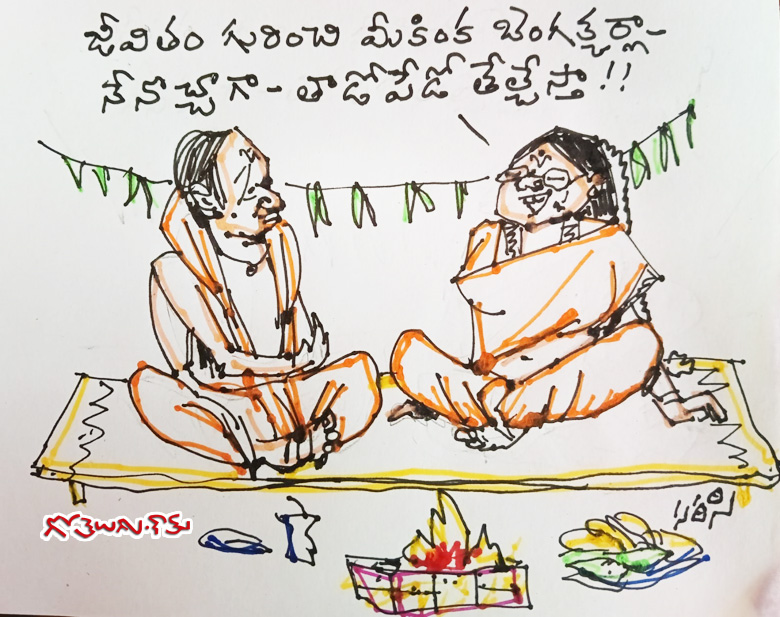 జీవితం గురించి మీకింక బెంగక్కర్లా-
నేనొచ్చాగా- తాడోపేడో తేల్చేస్తా!!
గోతెలుగు.కామ్